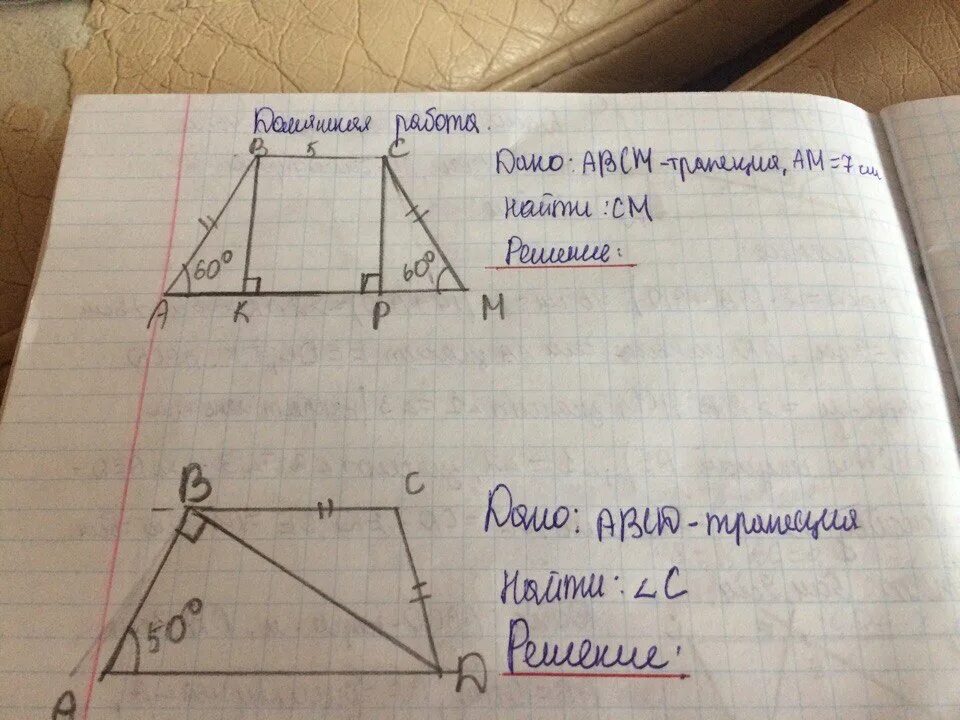 Домашная работа.
B 5 C
60° 60°
A K P M
Дано: ABCM-трапеция, AM=7см
Найти: CM
Решение:
B C
50°
A D
Дано: ABCD-трапеция
Найти: ∠C
Решение: